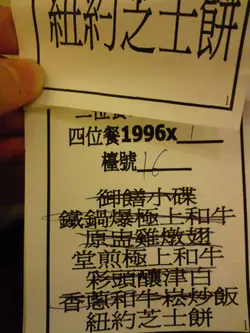 紐約芝士餅
四位餐1996x 1
檯號 16
御饍小碟
鐵鍋爆極上和牛
原盅雞燉翅
堂煎極上和牛
彩頭釀津白
香蔥和牛崧炒飯
紐約芝士餅